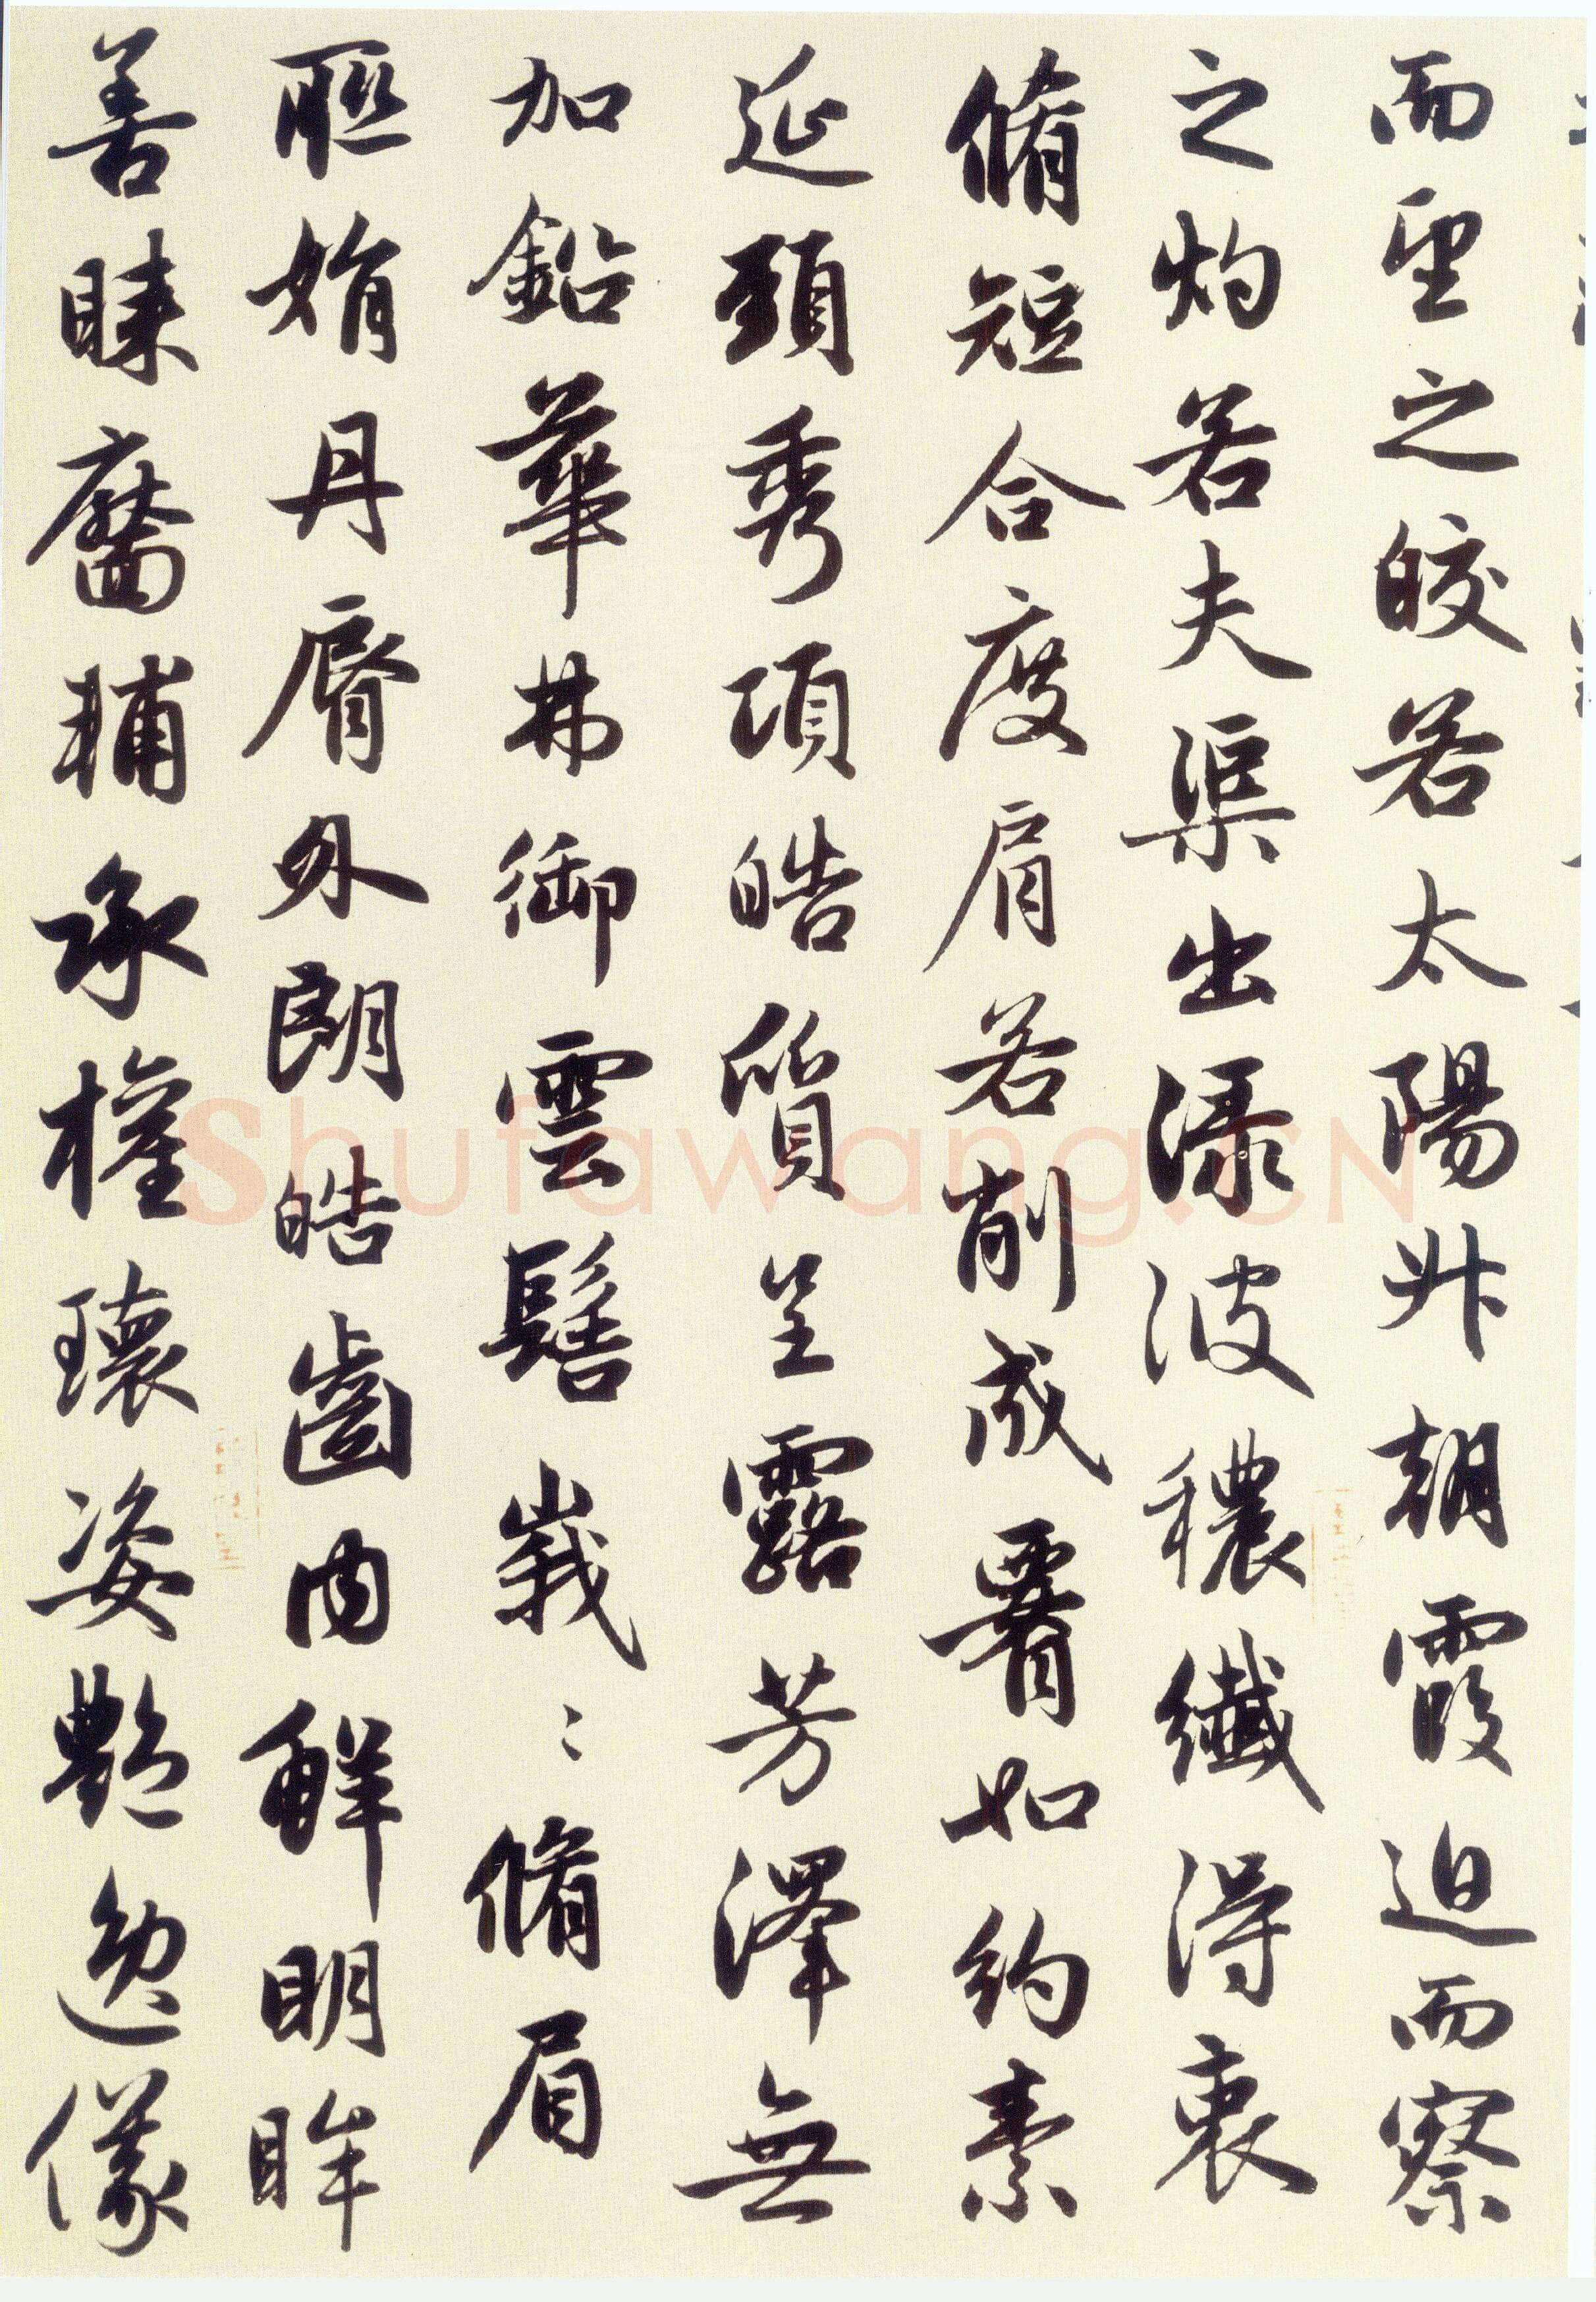 而望之皎若太陽升朝霞迫而察
之灼若夫渠出淥波穠纖得衷
脩短合度肩若削成署如約素
延頸秀項皓質呈露芳澤無
加鉛華弗御雲髻峩〻脩眉
聯娟丹脣外朗皓齒內鮮明眸
善睞靨輔承權瓌姿艷逸儀
Shufawang.CN